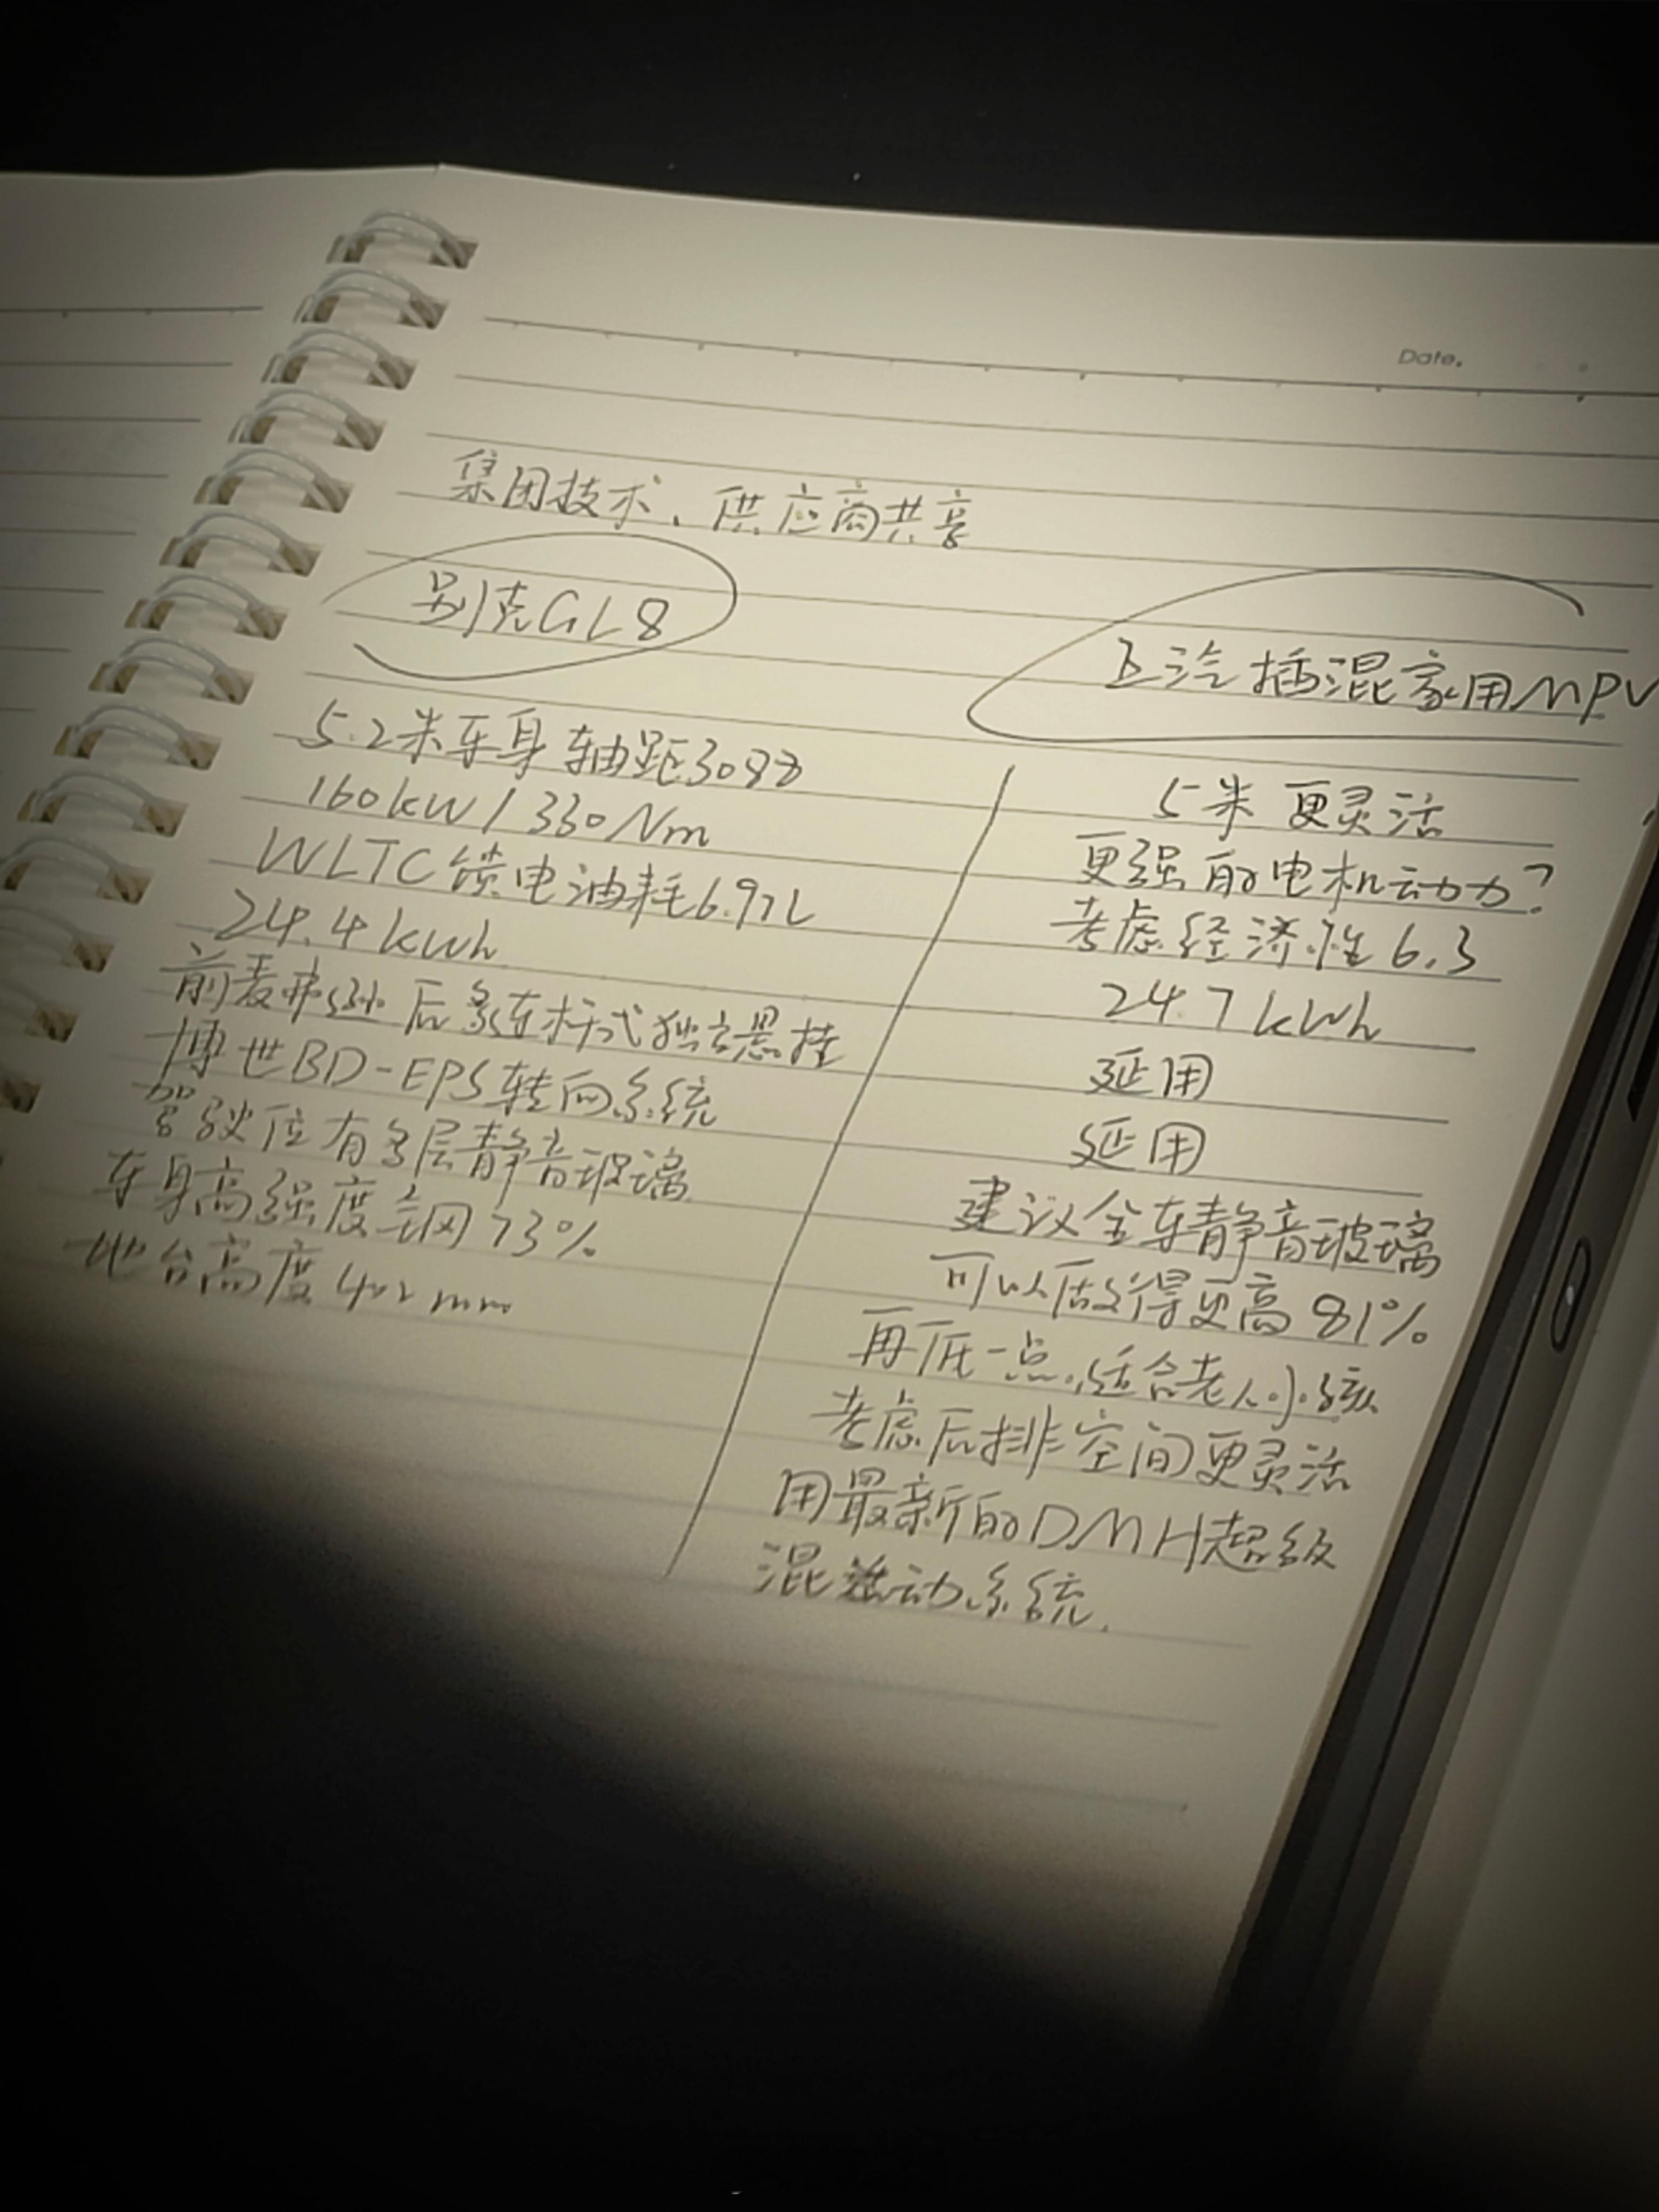 Date.
集团技术、供应商共享
别克GL8
上汽插混家用MPV
5.2米车身 轴距3088
160kW / 330Nm
WLTC馈电油耗6.97L
24.4kWh
前麦弗逊后多连杆式独立悬挂
博世BD-EPS转向系统
驾驶位有多层静音玻璃
车身高强度钢73%
地台高度402mm
5米 更灵活
更强的电机动力?
考虑经济性6.3
24.7kWh
延用
延用
建议全车静音玻璃
可以做得更高81%
再低一点,适合老人小孩
考虑后排空间更灵活
用最新的DMH超级
混动系统.